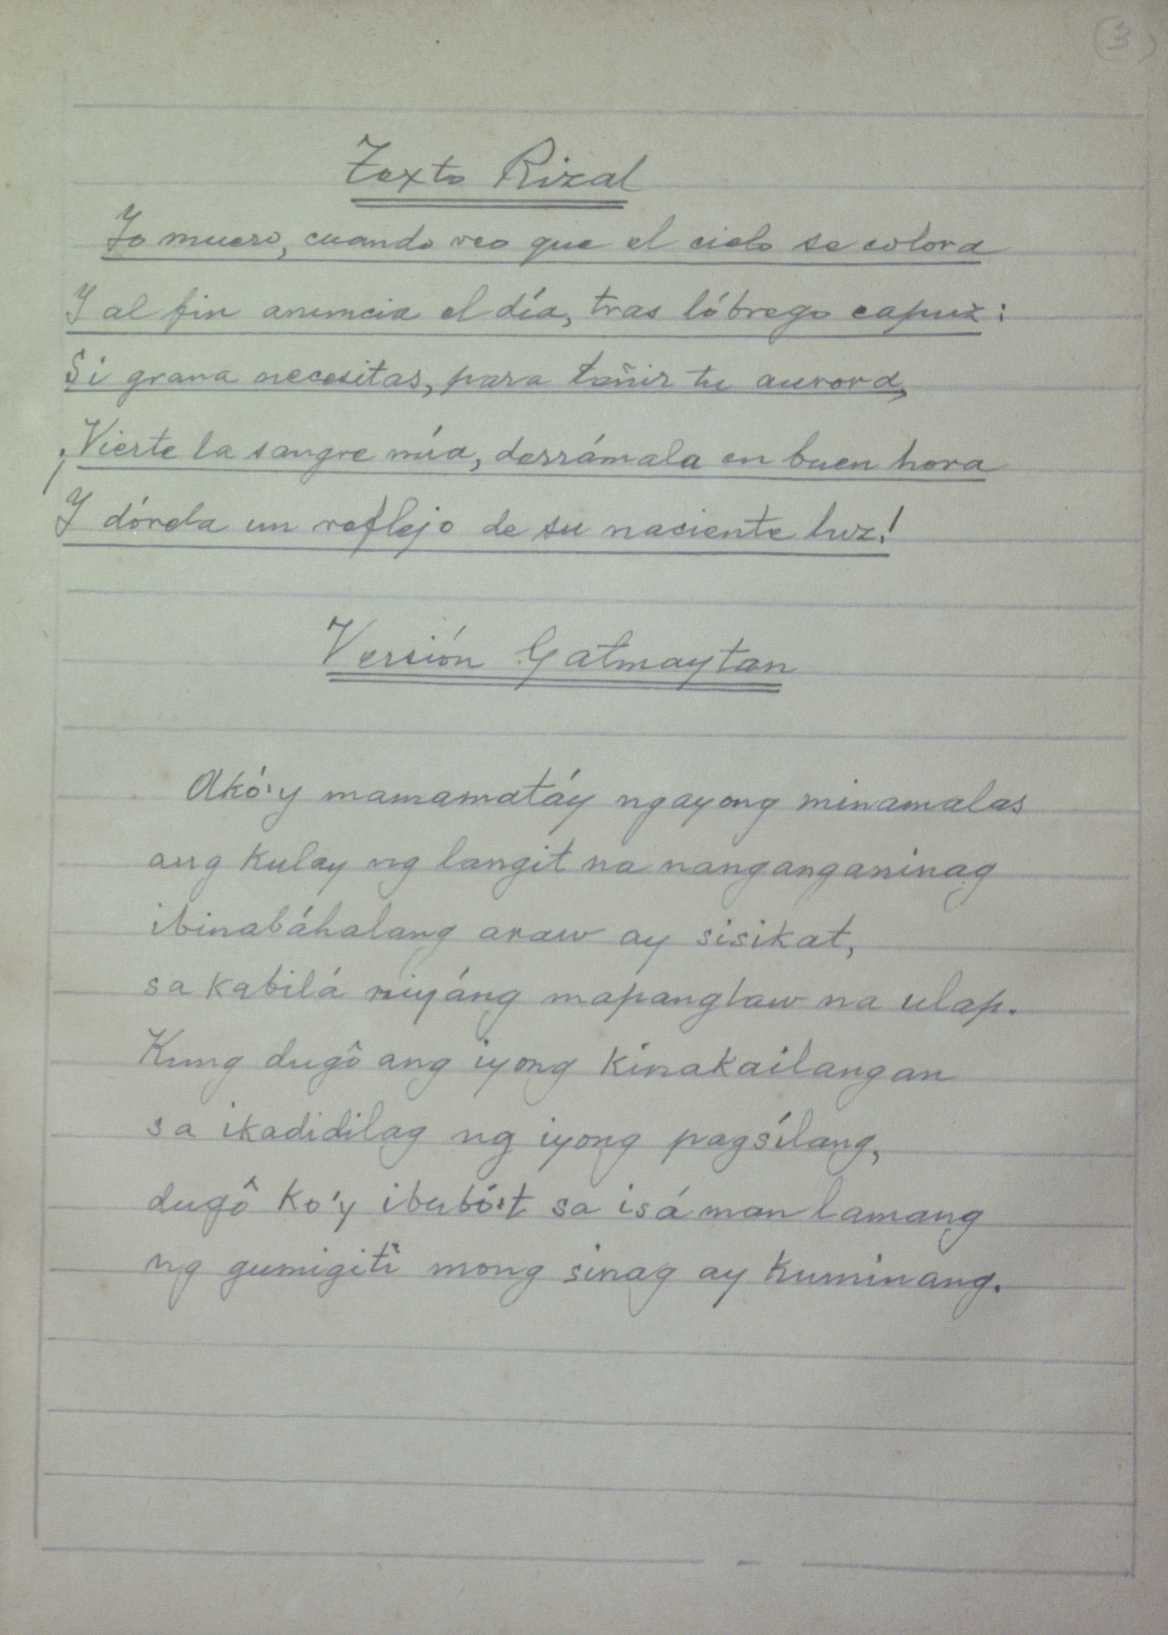 3
Texto Rizal
Yo muero, cuando veo que el cielo se colora
Y al fin anuncia el día, tras lóbrego capuz:
Si grana necesitas, para tañir tu aurora,
¡Vierte la sangre mía, derrámala en buen hora
Y dórela un reflejo de su naciente luz!
Versión Gatmaytan
Akó'y mamamatáy ngayong minamalas
ang kulay ng langit na nanganganinag
ibinabáhalang araw ay sisikat,
sa kabilá niyáng mapanglaw na ulap.
Kung dugô ang iyong kinakailangan
sa ikadidilag ng iyong pagsílang,
dugô ko'y ibubó't sa isá man lamang
ng gumigiti mong sinag ay kuminang.